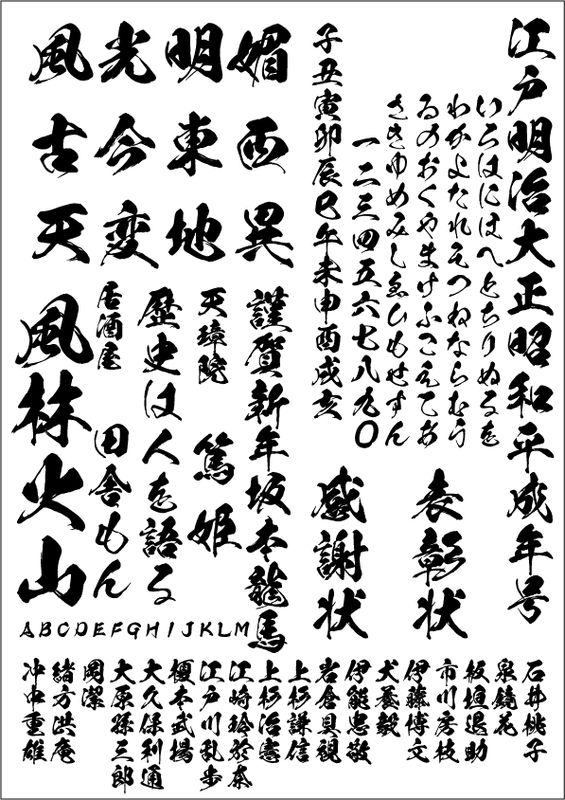 江戸明治大正昭和平成年号
いろはにほへとちりぬるを
わかよたれそつねならむう
ゐのおくやまけふこえてあ
さきゆめみしゑひもせすん
一二三四五六七八九〇
子丑寅卯辰巳午未申酉戌亥
表彰状
感謝状
風光明媚
古今東西
天変地異
謹賀新年坂本龍馬
天璋院 篤姫
歴史は人を語る
居酒屋 田舎もん
風林火山
ABCDEFGHIJKLM
石井桃子
泉鏡花
板垣退助
市川房枝
伊藤博文
犬養毅
伊能忠敬
岩倉具視
上杉謙信
上杉治憲
江崎玲於奈
江戸川乱歩
榎本武揚
大久保利通
大原孫三郎
岡潔
緒方洪庵
冲中重雄